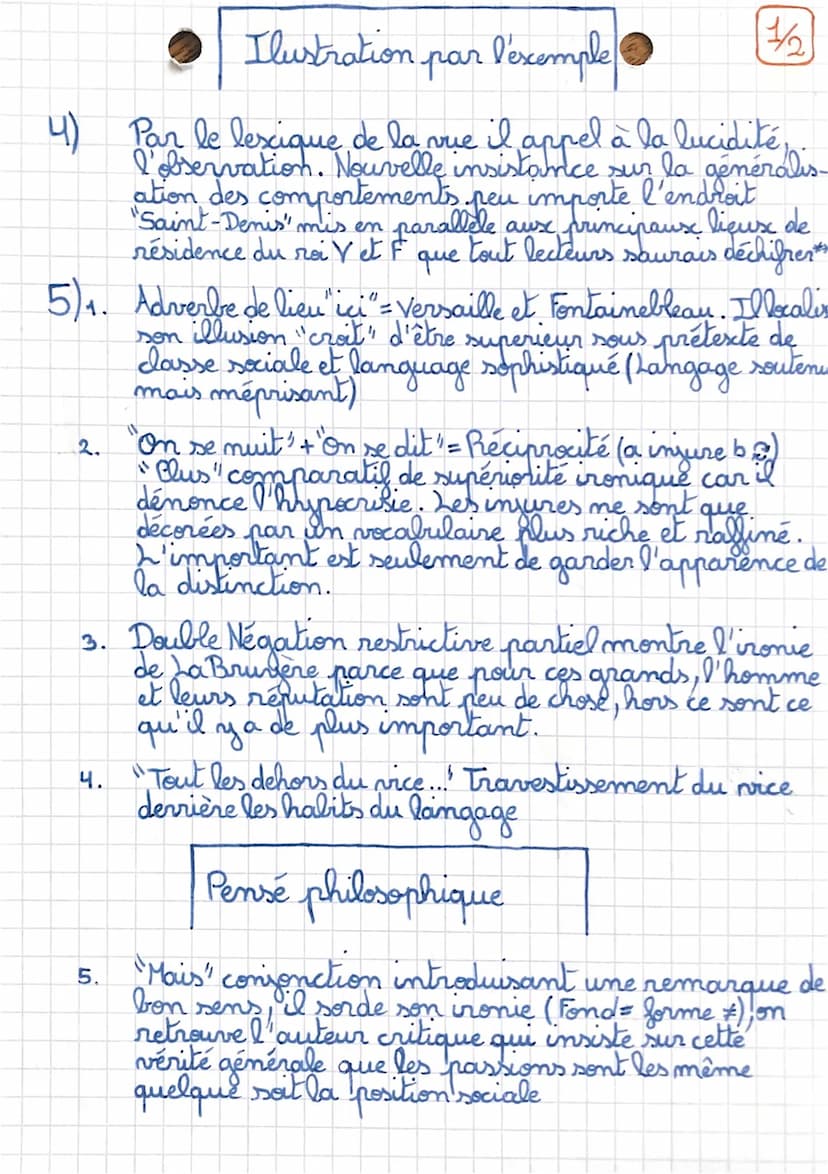 Ilustration par l'exemple
1/2
4) Par le lexique de la vue il appel à la lucidité,
l'observation. Nouvelle insistance sur la généralis-
ation des comportements peu importe l'endroit
"Saint-Denis" mis en parallèle aux principaux lieux de
résidence du roi V et F que tout lecteurs saurais déchiffrer*
5) 1. Adverbe de lieu "ici" = Versaille et Fontainebleau. Il localis
son illusion "croit" d'être superieur sous prétexte de
classe sociale et language sophistiqué (Langage soutenu
mais méprisant)
2. "On se nuit" + "On se dit" = Réciprocité (a injure b)
"Plus" comparatif de supériorité ironique car il
dénonce l'hypocrisie. Les injures ne sont que
décorées par un vocabulaire plus riche et raffiné.
L'important est seulement de garder l'apparence de
la distinction.
3. Double Négation restrictive partiel montre l'ironie
de La Bruyère parce que pour ces grands, l'homme
et leurs réputation sont peu de chose, hors ce sont ce
qu'il y a de plus important.
4. "Tout les dehors du vice..." Travestissement du vice
derrière les habits du langage
Pensé philosophique
5. "Mais" conjonction introduisant une remarque de
bon sens, il sorde son ironie (Fond= forme ≠), on
retrouve l'auteur critique qui insiste sur cette
vérité générale que les passions sont les même
quelque soit la position sociale